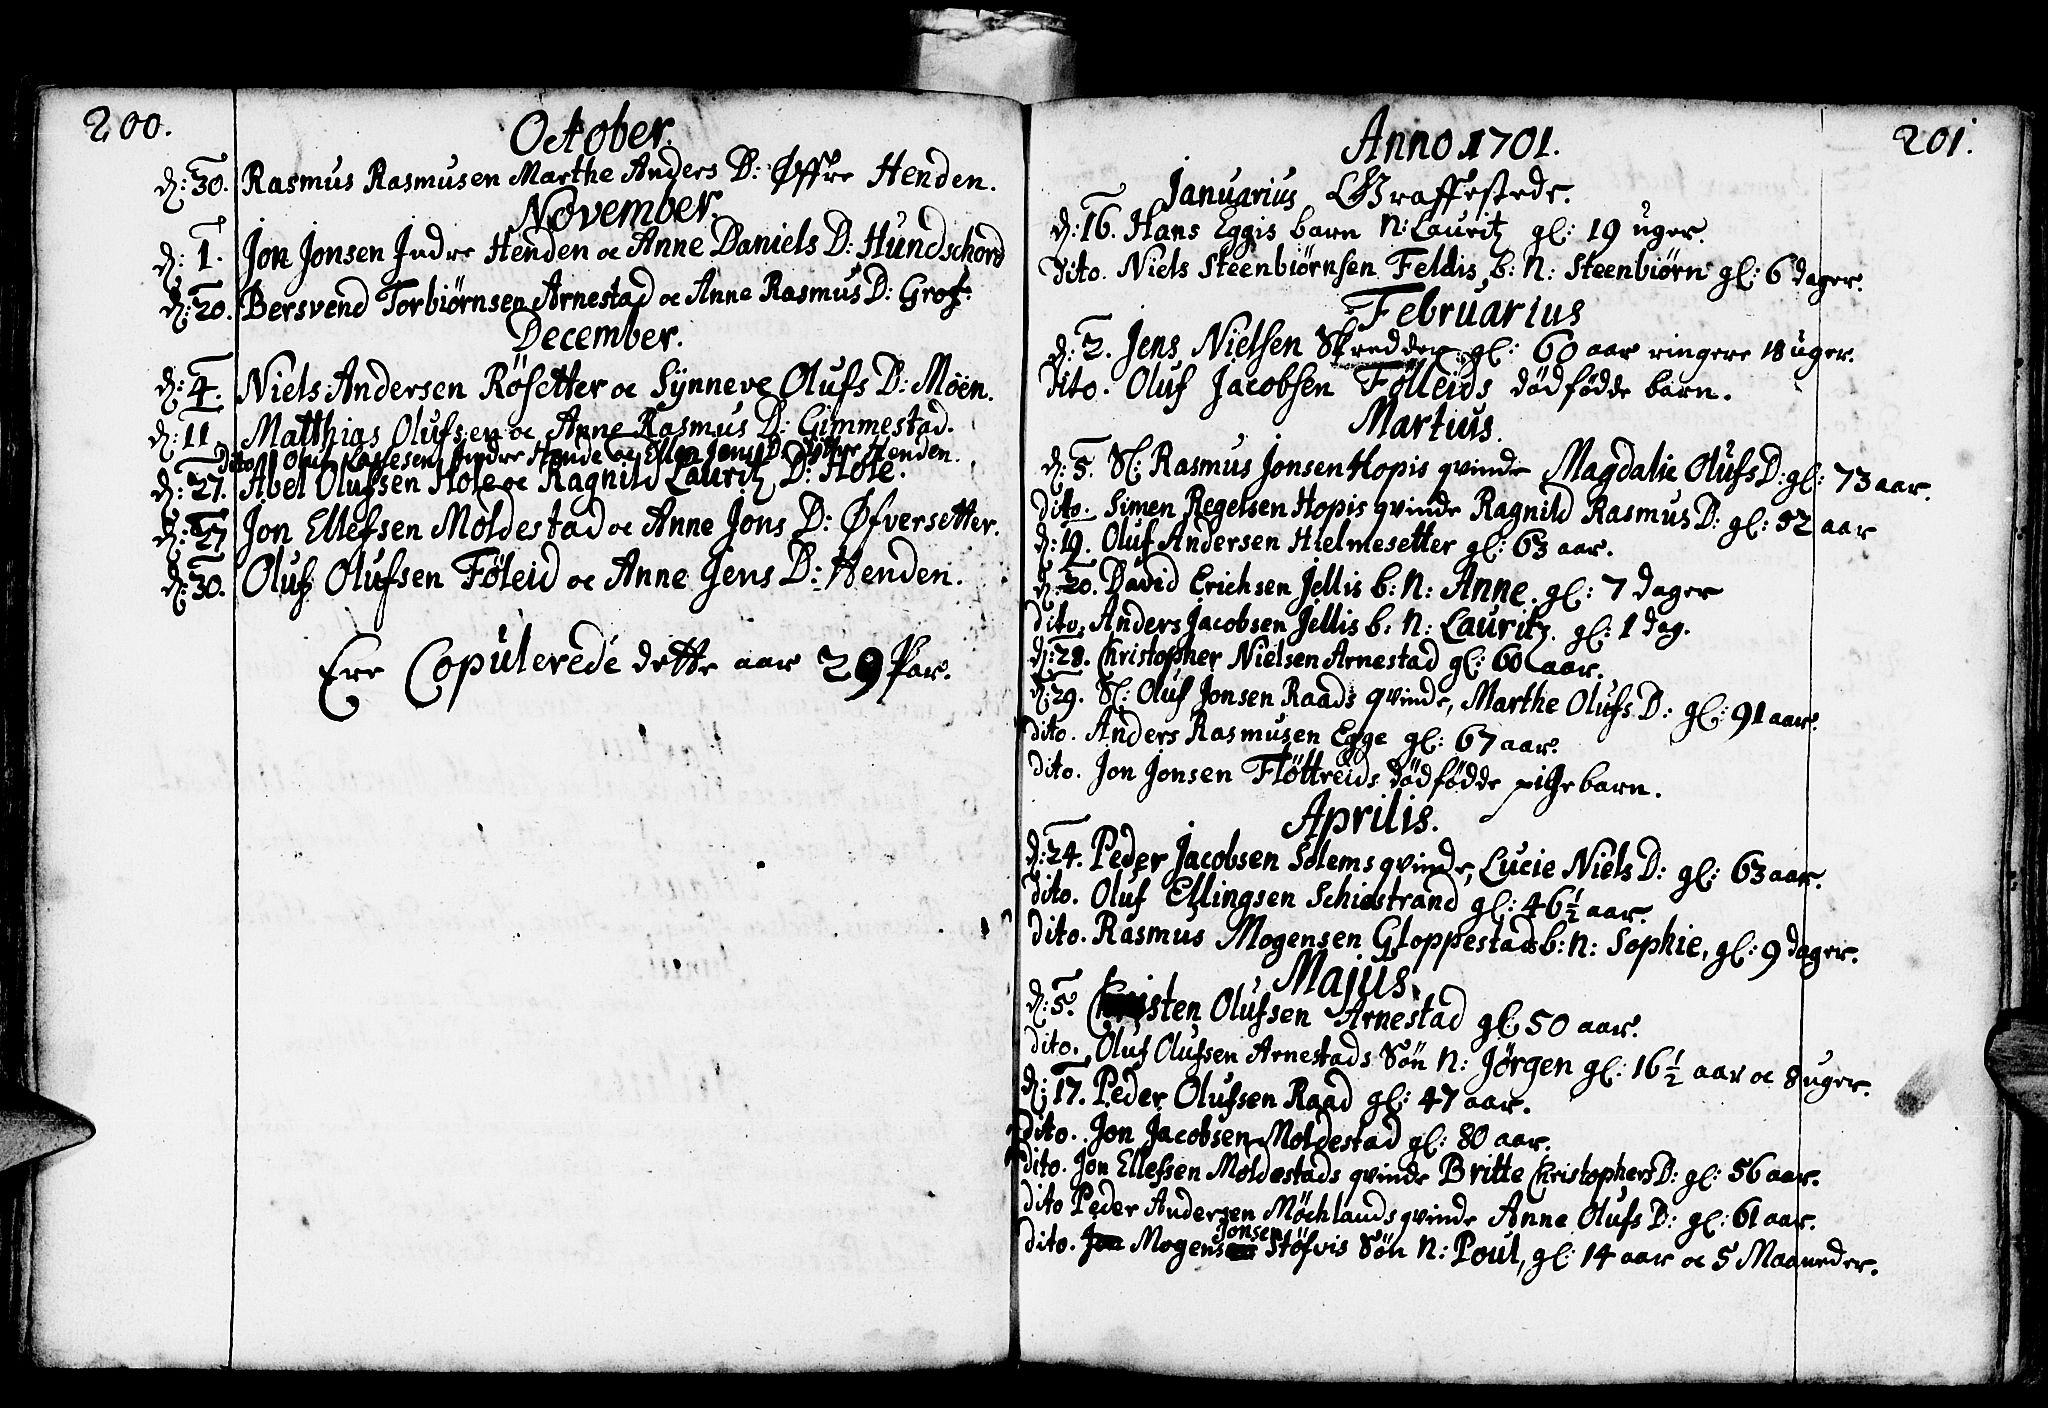 200.
October.
d: 30. Rasmus Rasmusen Marthe Anders D: Øffre Henden.
November.
d: 1. Jon Jonsen Indre Henden oc Anne Daniels D: Hundschord
d: 20. Bersvend Torbiørnsen Arnestad oc Anne Rasmus D: Grof.
December.
d: 4. Niels Andersen Røsetter oc Synneve Olufs D: Möen.
d: 11. Matthias Olufsen oc Anne Rasmus D: Gimmestad.
dito Oluf Lassesen Indre Hende oc Ellen Jens D: Henden.
d: 27. Abel Olufsen Hole oc Ragnild Lauritz D: Hole.
d: 27 Jon Ellefsen Moldestad oc Anne Jons D: Øfversetter.
d: 30. Oluf Olufsen Föleid oc Anne Jens D: Henden.
Ere Copulerede dette aar 29 Par.
201.
Anno 1701.
Januarius Graffestede.
d: 16. Hans Eggis barn N: Lauritz gl: 19 uger.
dito. Niels Steenbiørnsen Feldis b: N: Steenbiørn gl: 6 dager.
Februarius
d: 2. Jens Nielsen Skredder gl: 60 aar ringere 18 uger.
dito. Oluf Jacobsen Fölleids dödfödde barn.
Martius.
d: 5. Sl: Rasmus Jonsen Hopis qvinde Magdalie Olufs D: gl: 73 aar.
dito. Simen Regelsen Hopis qvinde Ragnild Rasmus D: gl: 52 aar
d: 19. Oluf Andersen Hielmesetter gl: 63 aar.
d: 20. David Erichsen Jellis b: N: Anne. gl: 7 dager
dito. Anders Jacobsen Jellis b: N: Lauritz. gl: 1 dag.
d: 28. Christopher Nielsen Arnestad gl: 60 aar.
d: 29. Sl: Oluf Jonsen Raads qvinde, Marthe Olufs D: gl: 91 aar.
dito. Anders Rasmusen Egge gl: 67 aar.
dito. Jon Jonsen Fløttreids dödfödde pige barn.
Aprilis.
d: 24. Peder Jacobsen Solems qvinde, Lucie Niels D: gl: 63 aar.
dito. Oluf Ellingsen Schiestrand gl: 46 1/2 aar.
dito. Rasmus Mogensen Gloppestads b: n: Sophie, gl: 9 dager.
Majus.
d: 5. Christen Olufsen Arnestad gl: 50 aar.
dito. Oluf Olufsen Arnestads Sön N: Jörgen gl: 16 1/2 aar oc 8 uger.
d: 17. Peder Olufsen Raad gl: 47 aar.
dito. Jon Jacobsen Moldestad gl: 80 aar.
dito. Jon Ellefsen Moldestads qvinde Britte Christophers D: gl: 56 aar.
dito Peder Andersen Möchlands qvinde Anne Olufs D: gl: 61 aar.
dito. Jon Mogens Jonsen Støfvis Sön N: Poul, gl: 14 aar oc 5 Maaneder.